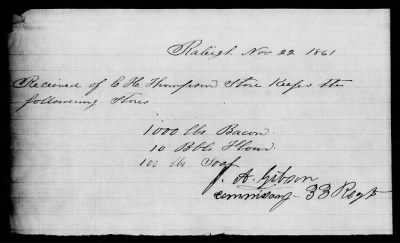 Raleigh Nov 22 1861
Received of C H Thompson Store Keeper the
following Stores
1000 lbs Bacon
10 Bbls Flour
100 lbs Soap
J. A. Gibson
Commissary 33 Regt